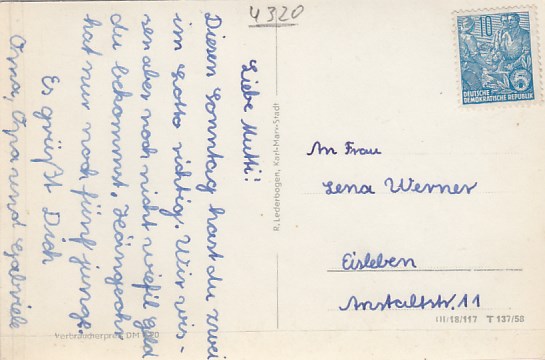 4320
Liebe Mutti!
Diesen Sonntag hast du zwei
im Lotto richtig. Wir wis-
sen aber noch nicht wiefil Geld
du bekommst. Hängeohr
hat nur noch fünf junge.
Es grüßt Dich
Oma, Opa und Gabriele
Verbraucherpreis DM 0,20
R. Lederbogen, Karl-Marx-Stadt
10
5
DEUTSCHE
DEMOKRATISCHE REPUBLIK
An Frau
Lena Werner
Eisleben
Anstaltstr. 11
III/18/117 T 137/58